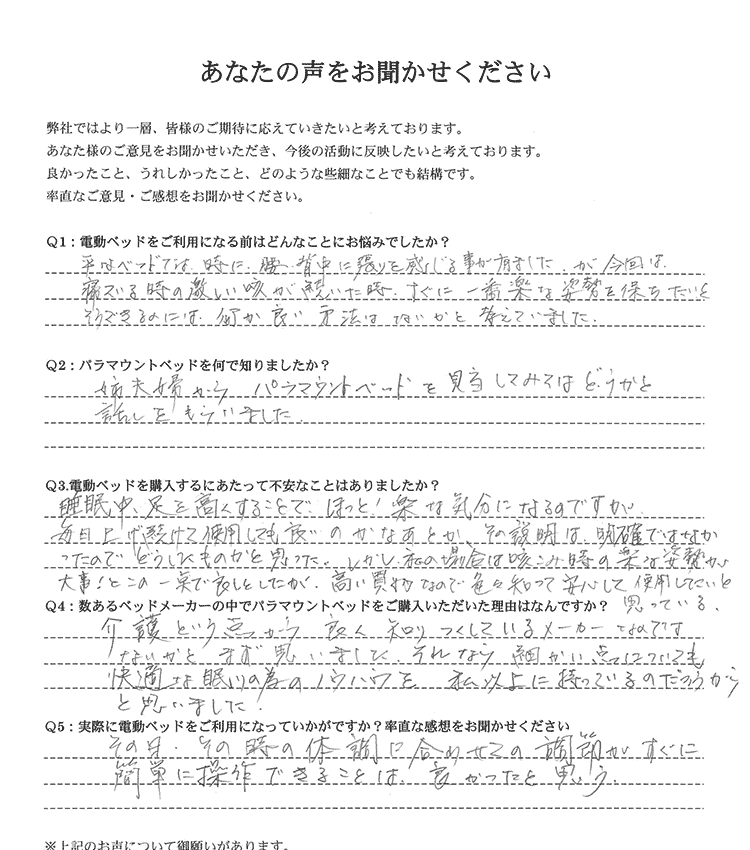 あなたの声をお聞かせください
弊社ではより一層、皆様のご期待に応えていきたいと考えております。
あなた様のご意見をお聞かせいただき、今後の活動に反映したいと考えております。
良かったこと、うれしかったこと、どのような些細なことでも結構です。
率直なご意見・ご感想をお聞かせください。
Q1：電動ベッドをご利用になる前はどんなことにお悩みでしたか？
平なベッドでは、時に、腰、背中に張りを感じる事が有ました、が今回は、
寝ている時の激しい咳が続いた時、すぐに一番楽な姿勢を保ちたいと
そうできるのには、何か良い方法はないかと考えていました。
Q2：パラマウントベッドを何で知りましたか？
姉夫婦から パラマウントベッドを見当してみてはどうかと
話しをもらいました。
Q3.電動ベッドを購入するにあたって不安なことはありましたか？
睡眠中、足を高くすることで、ほっと！楽な気分になるのですが
毎日上げ続けて使用しても良いのかなあとか、その説明は、明確ではなか
ったので どうしたものかと思った。しかし、私の場合は咳こみ時の楽な姿勢が
大事！とこの一点で良しとしたが、高い買物なので色々知って安心して使用したいと
思っている。
Q4：数あるベッドメーカーの中でパラマウントベッドをご購入いただいた理由はなんですか？
介護という点から 良く知りつくしているメーカーなのでは
ないかと まず思いました、それなら 細かい点についても
快適な眠りの為のノウハウを 私以上に持っているのだろうから
と思いました。
Q5：実際に電動ベッドをご利用になっていかがですか？率直な感想をお聞かせください
その日、その時の体調に合わせての調節がすぐに
簡単に操作できることは、良かったと思う。
※上記のお声について御願いがあります。